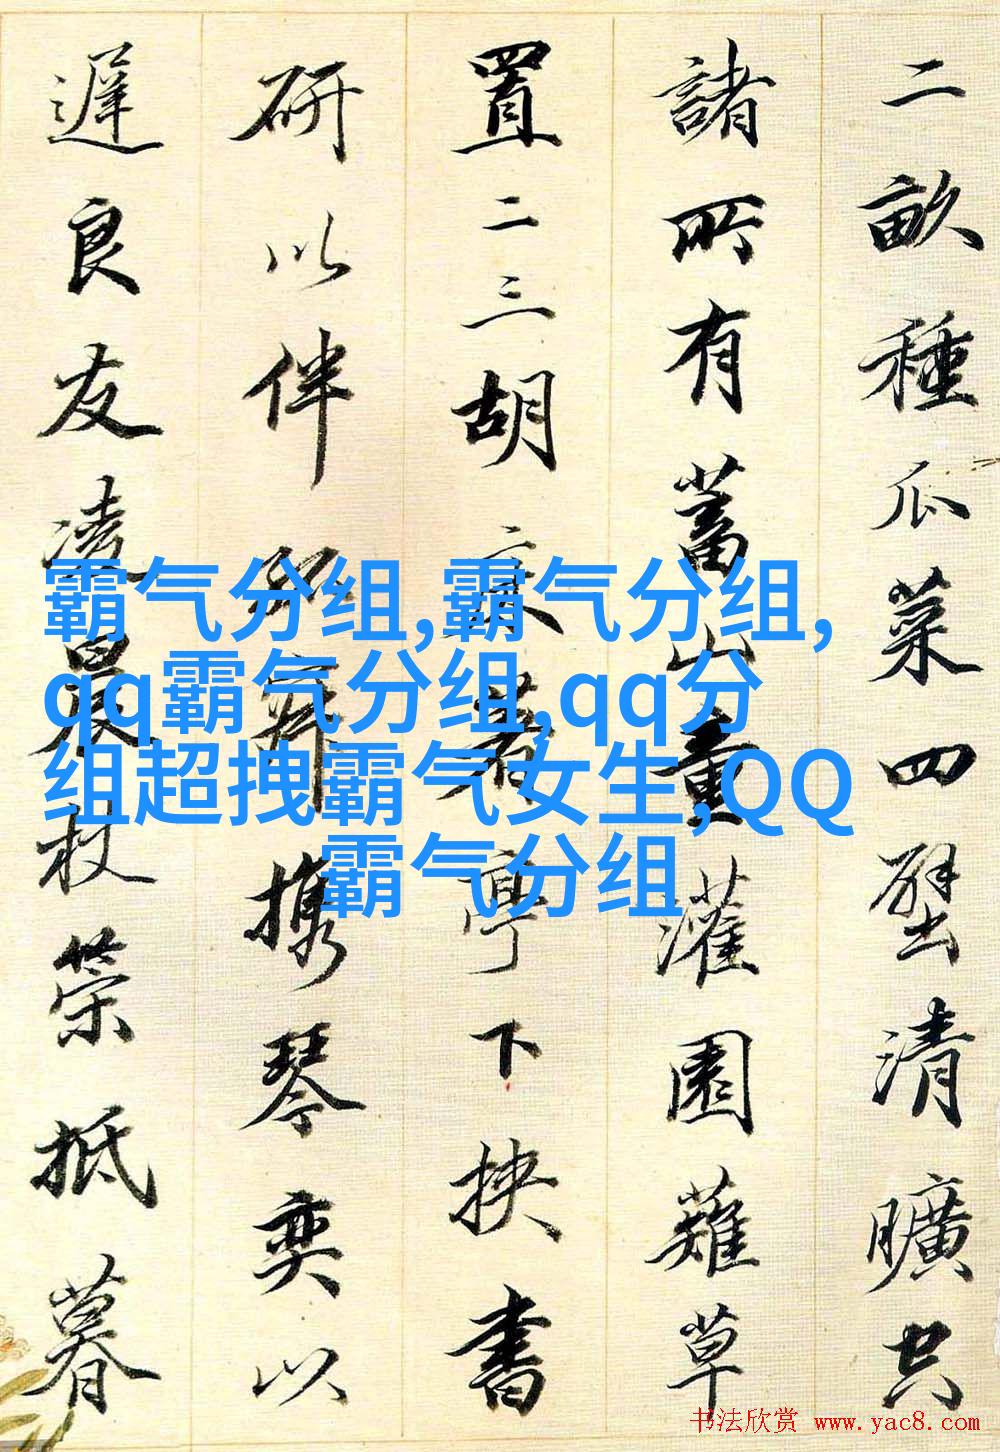 二畝種瓜菜四壁清曠空
諸所有蓄山童灌園薙草
置二三胡床著亭下挾書
研以伴孤寂攜琴奕以
遲良友凌晨杖策抵暮
霸气分组,霸气分组,
qq霸气分组,qq分
组超拽霸气女生,QQ
霸气分组
书法欣赏 www.yac8.com